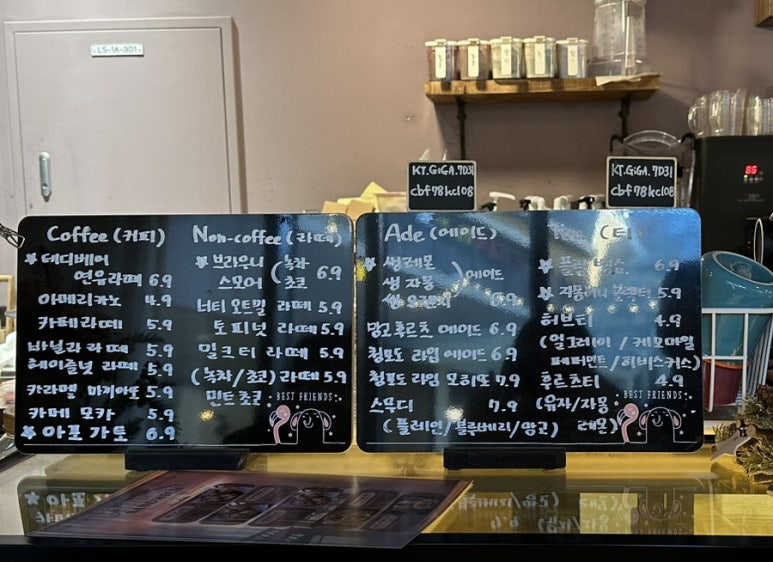 LS-1A-301
KT.GiGA.7D31
cbf78kc108
KT.GiGA.7D31
cbf78kc108
86
Coffee (커피)
★ 테디베어
연유라떼 6.9
아메리카노 4.9
카페라떼 5.9
바닐라 라떼 5.9
헤이즐넛 라떼 5.9
카라멜 마끼아또 5.9
카페 모카 5.9
★ 아포가토 6.9
Non-coffee (라떼)
★ 브라우니 (녹차
스모어 초코 6.9
너티 오트밀 라떼 5.9
토피넛 라떼 5.9
밀크티 라떼 5.9
(녹차/초코) 라떼 5.9
민트초코
BEST FRIENDS
Ade (에이드)
★ 생레몬
생 자몽 ) 에이드
6.9
망고후르츠 에이드 6.9
청포도 라임 에이드 6.9
청포도 라임 모히또 7.9
스무디 7.9
(플레인/블루베리/망고)
(티)
6.9
★ 5.9
허브티 4.9
(얼그레이/케모마일
페퍼민트/히비스커스)
후르츠티 4.9
(유자/자몽
레몬)
BEST FRIENDS